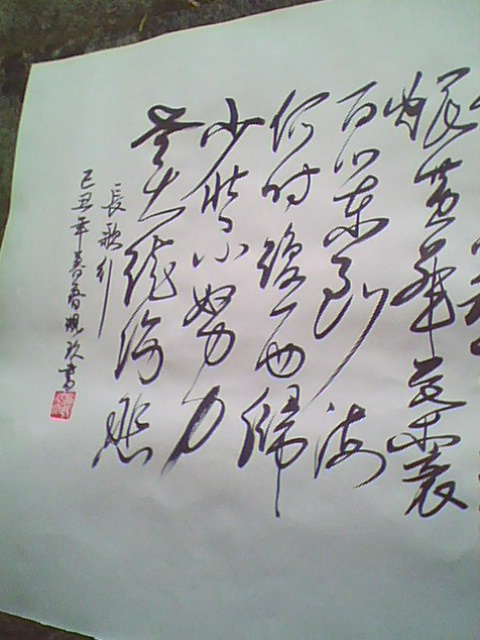 焜黄華葉衰
百川東到海
何時復西歸
少壯不努力
老大徒傷悲
長歌行
己丑年春書